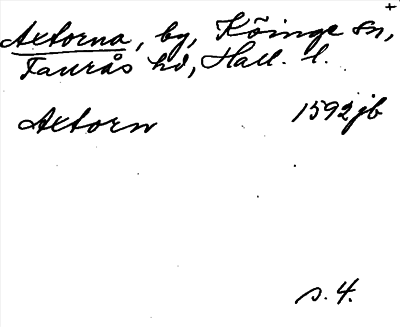 Axtorna, by, Köinge sn,
Faurås hd, Hall. l.
Axtorn 1592 jb
s. 4.